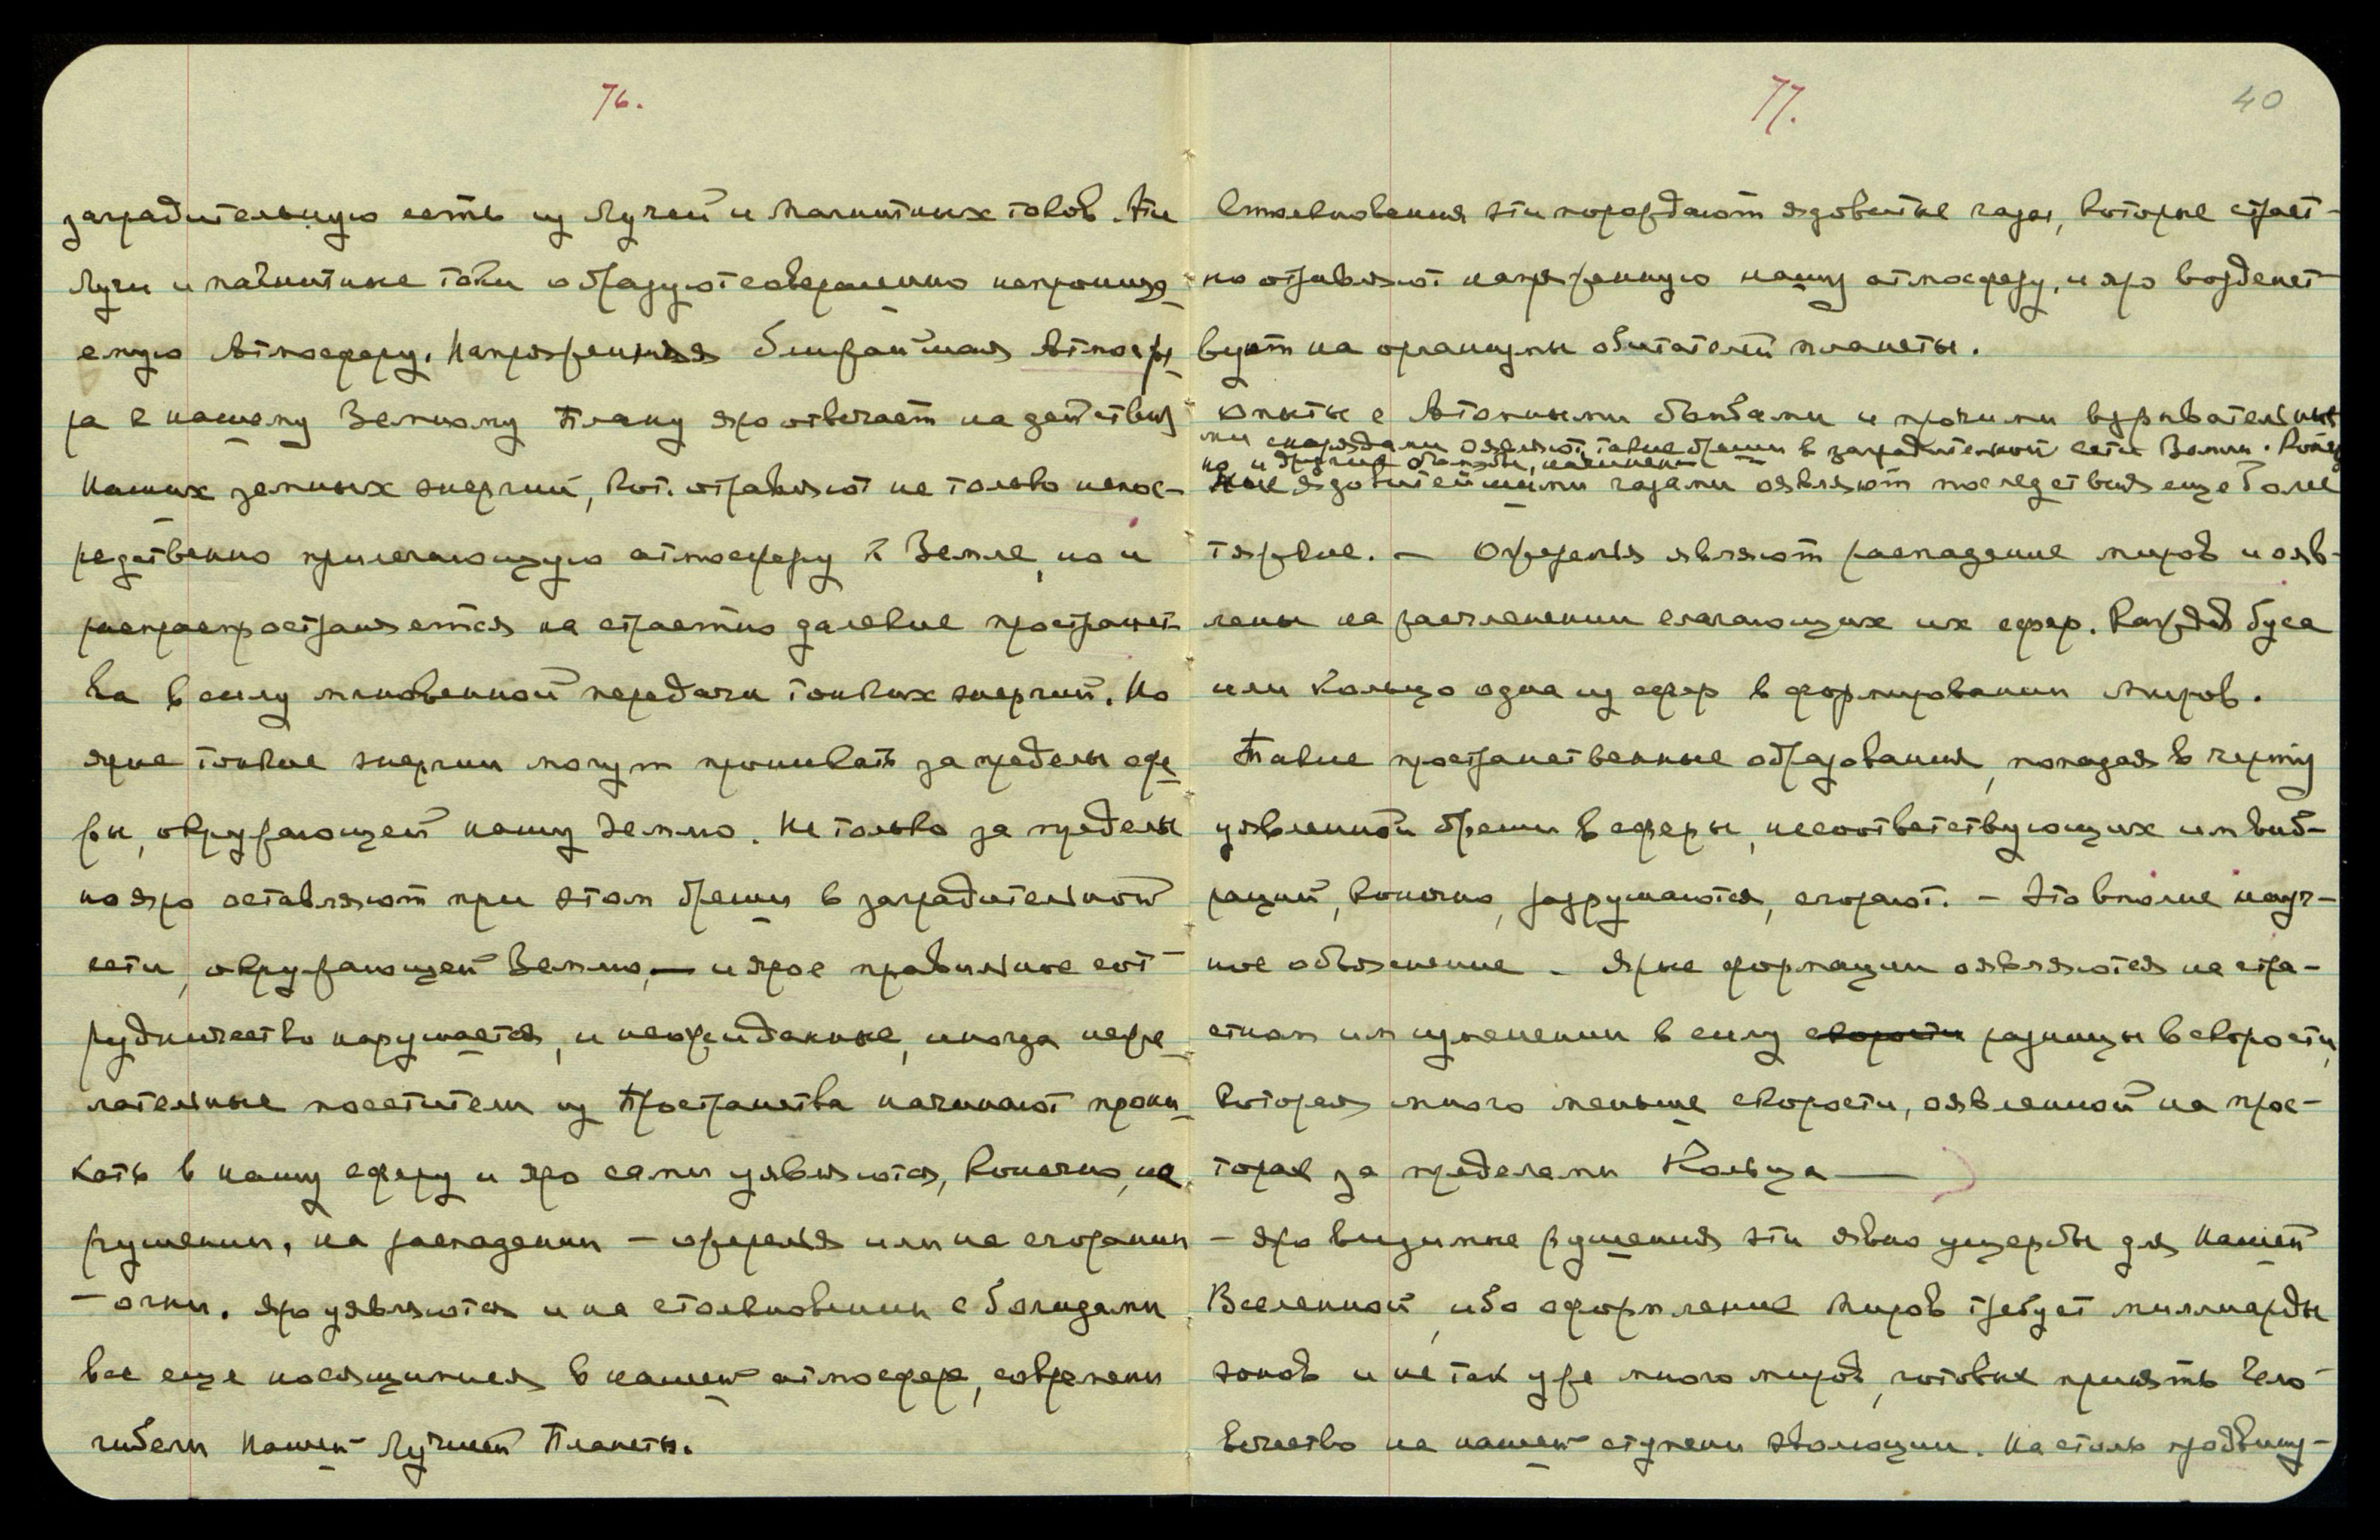 76.
заградительную сеть из Лучей и Магнитных токов. Эти
Лучи и магнитные токи образуют совершенно непроница-
емую Атмосферу. Напряженная ближайшая Атмосфе-
ра к нашему Земному Плану яро отвечает на действия
Наших земных энергий, кот. отравляют не только непос-
редственно прилегающую атмосферу к Земле, но и
распространяется на страстно далекие пространст-
ва в силу мгновенной передачи тонких энергий. Но
ярые тонкие энергии могут проникать за пределы сфе-
ры, окружающей нашу Землю. Не только за пределы
но яро оставляют при этом бреши в заградительной
сети, окружающей Землю, — и ярое правильное сот-
рудничество нарушается, и неожиданные, иногда неже-
лательные посетители из Пространства начинают прони-
кать в нашу сферу и яро сами уявляются, конечно, на
рушении, на распадении – ожерелья или на сгорании
– огни. яро уявляются и на столкновении с болидами
все еще носящимися в нашей атмосфере, со времени
гибели Нашей Лучшей Планеты.
77.
40
Столкновения эти порождают ядовитые газы, которые страст-
но отравляют напряженную нашу атмосферу, и яро воздейст-
вуют на организмы обитателей планеты.
Опыты с Атомными бомбами и прочими взрывательны-
ми снарядами оявляют такие бреши в заградительной сети Земли. Конеч-
но и другие бомбы, начинен-
ные ядовитейшими газами оявляют последствия еще более
тяжкие. – Ожерелья являют распадение миров и ояв-
лены на расчленении слагающих их сфер. Каждая буса
или Кольцо одна из сфер в формировании Миров.
Такие пространственные образования, попадая в черту
уявленной бреши в сферы, несоответствующих им виб-
раций, конечно, разрушаются, сгорают. – Это вполне науч-
ное объяснение – Ярые формации оявляются на стра-
стном им изменении в силу скорости разницы в скорости,
которая много меньше скорости, оявленной на прос-
торах за пределами Кольца —
– яро видимые рушения эти явно ущербы для Нашей
Вселенной, ибо оформление Миров требует миллиарды
эонов и не так уже много миров, готовых принять Чело-
вечество на нашей ступени эволюции. На столь продвину-